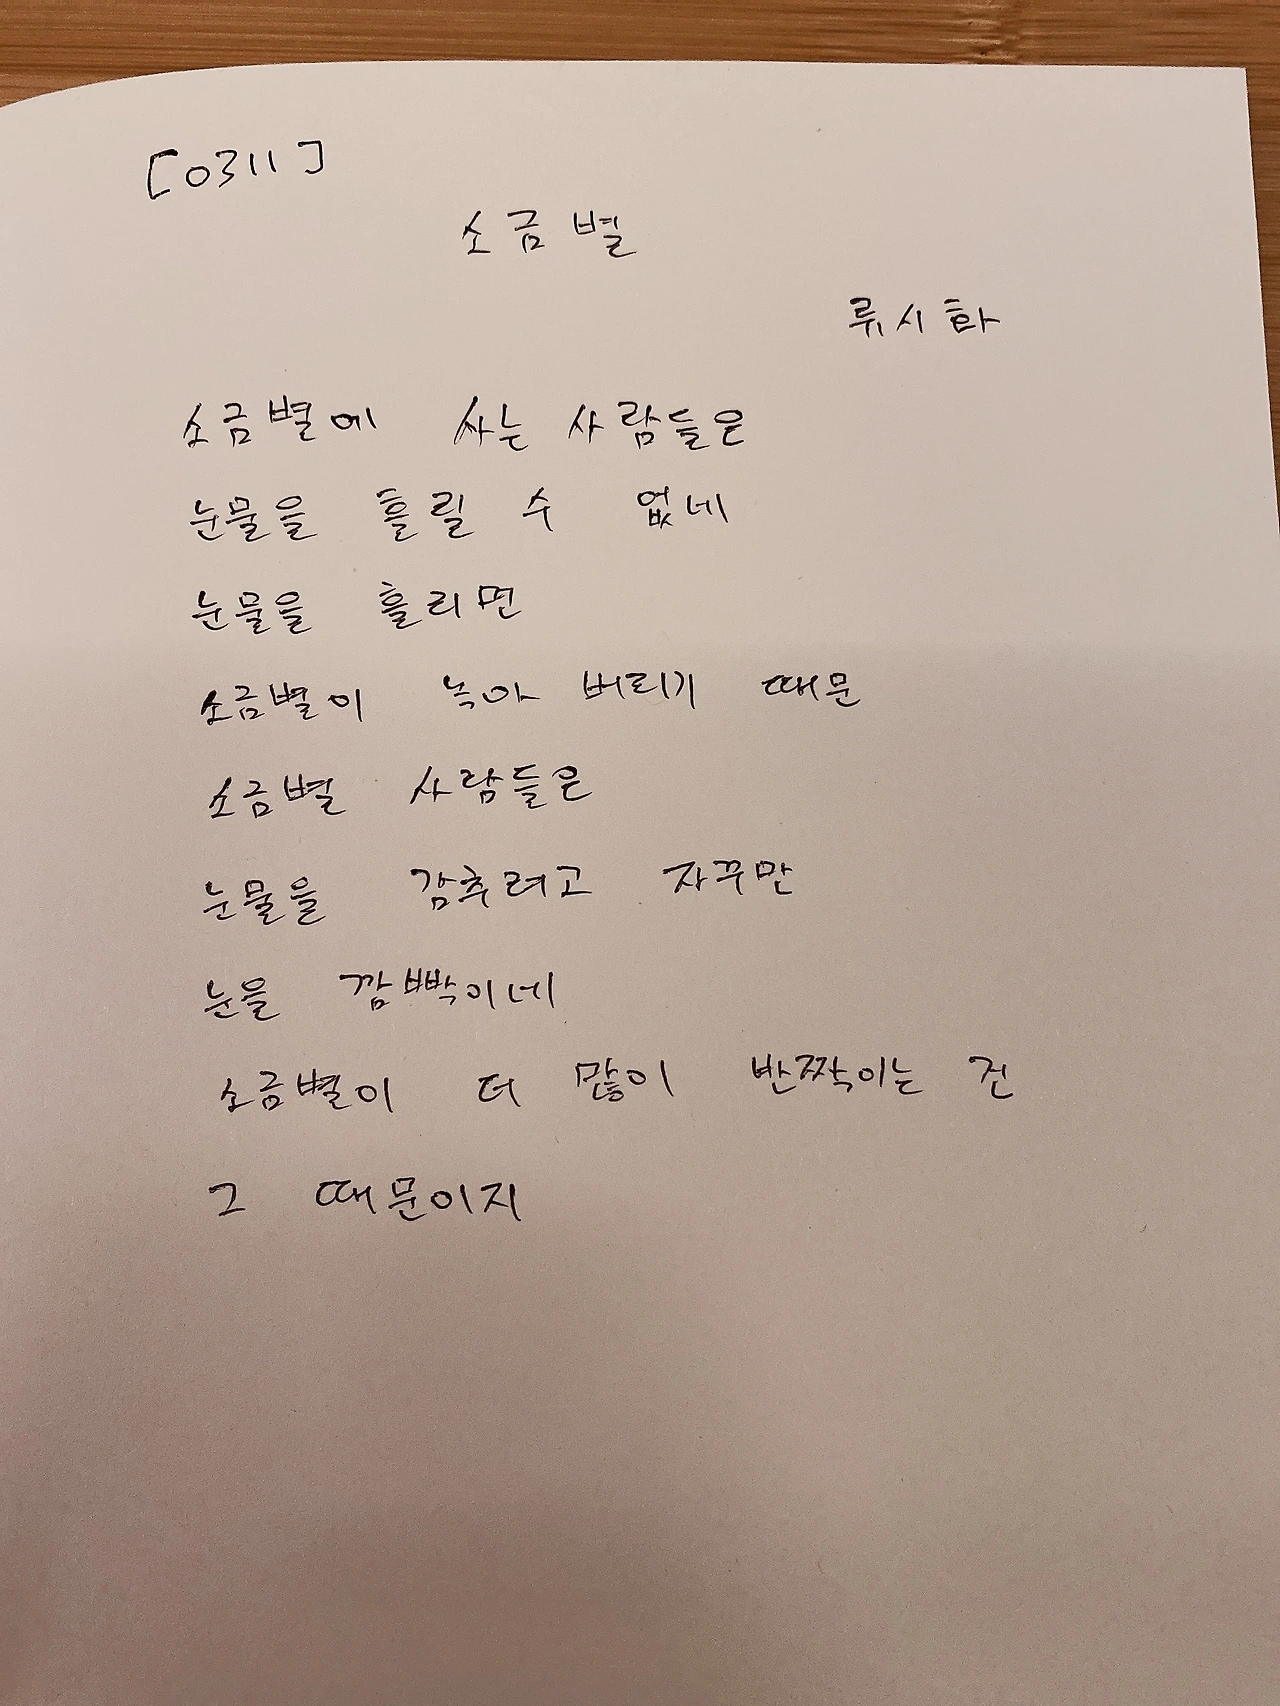 [0311]
소금별
류시화
소금별에 사는 사람들은
눈물을 흘릴 수 없네
눈물을 흘리면
소금별이 녹아 버리기 때문
소금별 사람들은
눈물을 감추려고 자꾸만
눈을 깜빡이네
소금별이 더 많이 반짝이는 건
그 때문이지